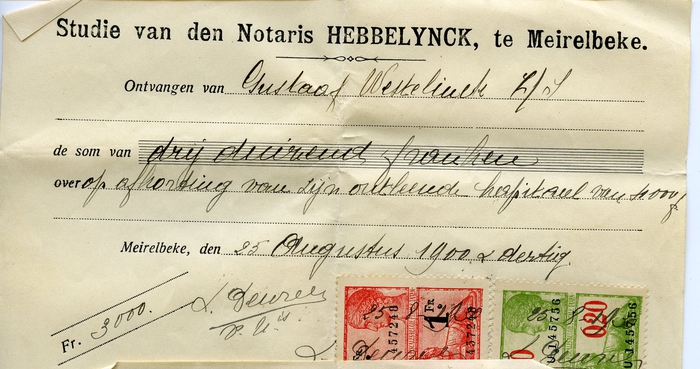 Studie van den Notaris HEBBELYNCK, te Meirelbeke.
Ontvangen van Gustaaf Westelinck
de som van drij duizend franken
over op afkorting van zijn ontleende kapitaal van 4.000 f
Meirelbeke, den 25 Augustus 1900 & dertig
Fr. 3000.
1 Fr
457248
0,20
145756